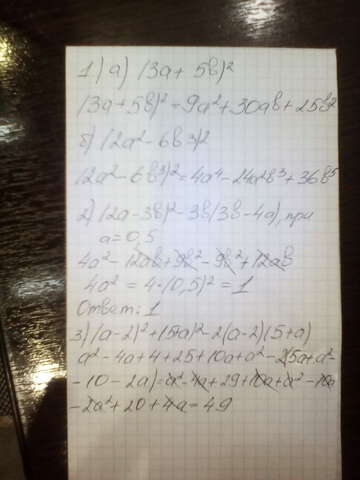 1) а) (3a + 5b)²
(3a + 5b)² = 9a² + 30ab + 25b²
б) (2a² - 6b³)²
(2a² - 6b³)² = 4a⁴ - 24a²b³ + 36b⁵
2) (2a - 3b)² - 3b(3b - 4a), при
a = 0,5
4a² - 12ab + 9b² - 9b² + 12ab
4a² = 4 · (0,5)² = 1
Ответ: 1
3) (a - 2)² + (5+a)² - 2(a - 2)(5 + a)
a² - 4a + 4 + 25 + 10a + a² - 2(5a + a² -
- 10 - 2a) = a² - 4a + 29 + 10a + a² - 10a
- 2a² + 20 + 4a = 49